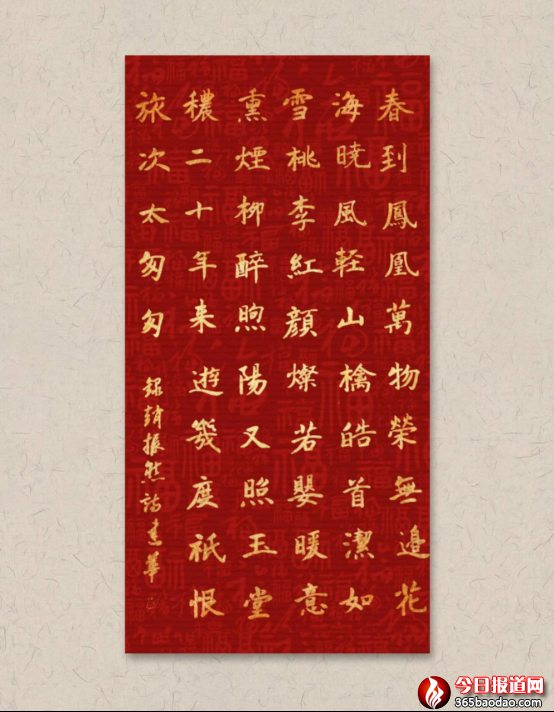 春到鳳凰萬物榮無邊花
海曉風軽山檎皓首潔如
雪桃李紅顔燦若嬰暖意
熏煙柳醉煦陽又照玉堂
穠二十年来遊幾度祇恨
旅次太匆匆 録趙振然詩 華
今日报道网
365baodao.com